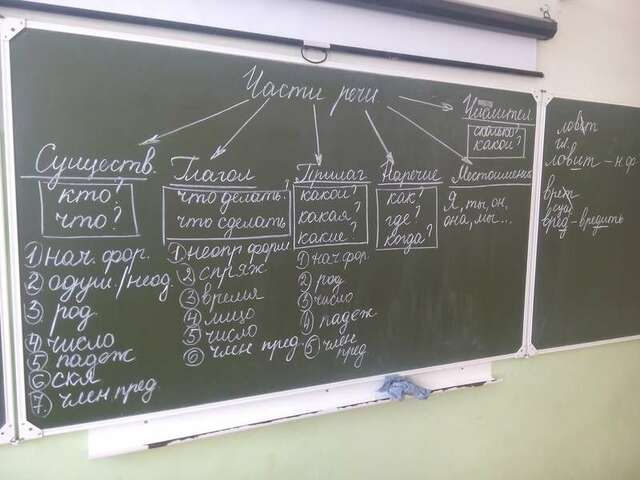 Части речи
Существ.
кто?
что?
1 нач. фор.
2 одуш./неод.
3 род
4 число
5 падеж
6 скл
7. член пред.
Глагол
что делать?
что сделать
1 неопр форм
2 спряж
3 время
4 лицо
5 число
6 член пред.
Прилаг
какой?
какая?
какие?
1 нач фор.
2 род
3 число
4 падеж
5 член
пред.
Наречие
как?
где?
когда?
Числител.
сколько?
какой?
Местоимение
Я, ты, он,
она, мы...
ловит
гл.
ловит - н.ф.
вред - вредить